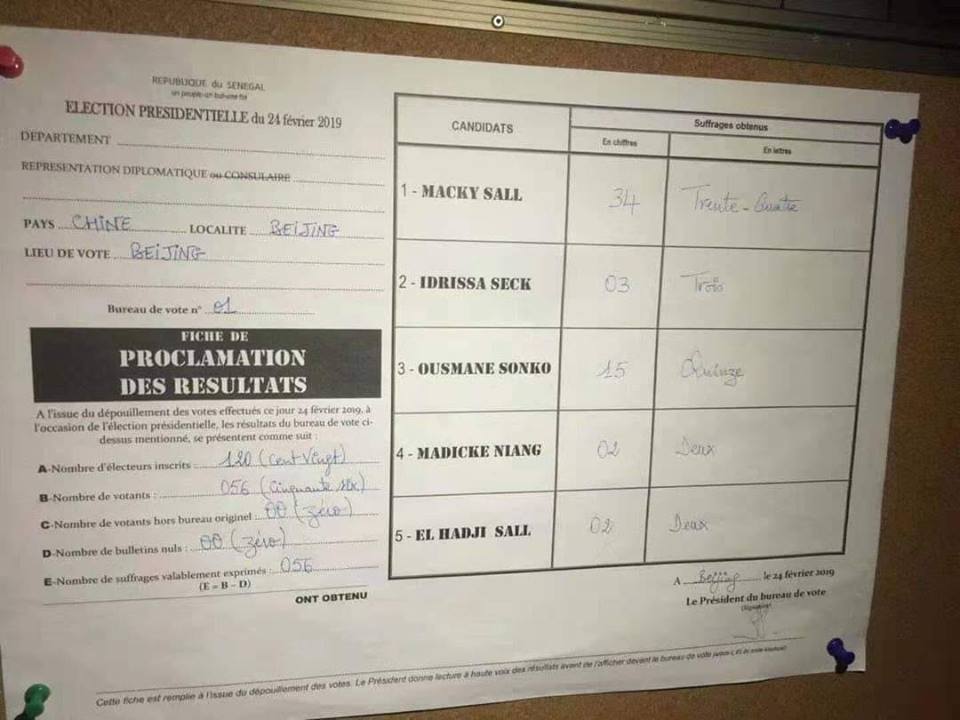 REPUBLIQUE du SENEGAL
un peuple-un but-une foi
ELECTION PRESIDENTIELLE du 24 février 2019
DEPARTEMENT
REPRESENTATION DIPLOMATIQUE ou CONSULAIRE
PAYS CHINE LOCALITE BEIJING
LIEU DE VOTE BEIJING
Bureau de vote n° 01
FICHE DE
PROCLAMATION
DES RESULTATS
A l'issue du dépouillement des votes effectués ce jour 24 février 2019, à
l'occasion de l'élection présidentielle, les résultats du bureau de vote ci-
dessus mentionné, se présentent comme suit :
A-Nombre d'électeurs inscrits : 120 (Cent Vingt)
B-Nombre de votants : 056 (Cinquante six)
C-Nombre de votants hors bureau originel : 00 (zéro)
D-Nombre de bulletins nuls : 00 (zéro)
E-Nombre de suffrages valablement exprimés : 056
(E = B - D)
ONT OBTENU
CANDIDATS
Suffrages obtenus
En chiffres
En lettres
1 - MACKY SALL 34 Trente-Quatre
2 - IDRISSA SECK 03 Trois
3 - OUSMANE SONKO 15 Quinze
4 - MADICKE NIANG 02 Deux
5 - EL HADJI SALL 02 Deux
A Beijing le 24 février 2019
Le Président du bureau de vote
(Signature)
Cette fiche est remplie à l'issue du dépouillement des votes. Le Président donne lecture à haute voix des résultats avant de l'afficher devant le bureau de vote